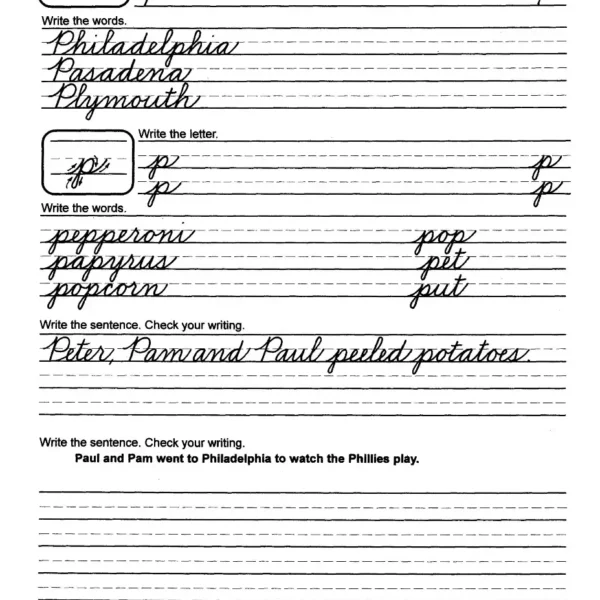 Write the words.
Philadelphia
Pasadena
Plymouth
Write the letter.
p p p
p p
Write the words.
pepperoni pop
papyrus pet
popcorn put
Write the sentence. Check your writing.
Peter, Pam and Paul peeled potatoes.
Write the sentence. Check your writing.
Paul and Pam went to Philadelphia to watch the Phillies play.